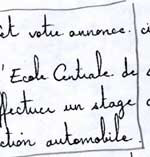 et votre annonce. ci
l'Ecole Centrale de
ffectuer un stage
ction automobile.